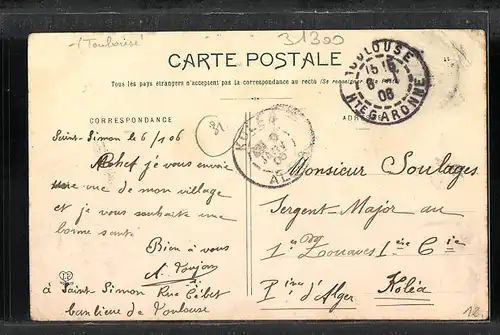 (Toulouse)
31300
CARTE POSTALE
Tous les pays étrangers n'acceptent pas la correspondance au recto (Se renseigner à la Poste)
TOULOUSE
15 15
6 - 1
06
HTE GARONNE
CORRESPONDANCE
ADRESSE
31
KOLEA
9
JANV
06
ALGER
Saint-Simon le 6/1 06
je vous envoie
une vue de mon village
et je vous souhaite une
bonne santé
Bien à vous
à Saint-Simon Rue
banlieue de Toulouse
Monsieur Soulages
Sergent-Major au
1er Zouaves 1ère Cie
Pince d'Alger Koléa
12